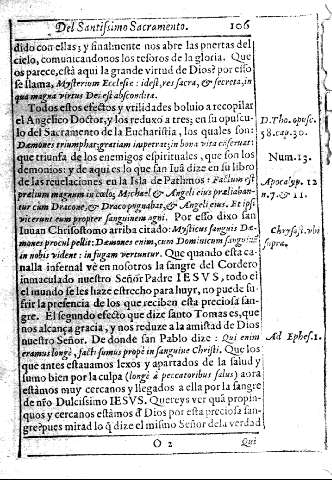 Del Santissimo Sacramento. 106
dido con ellas; y finalmente nos abre las puertas del
cielo, comunicandonos los tesoros de la gloria. Que
os parece, está aqui la grande virtud de Dios? por esso
se llama, Mysterium Ecclesiæ: idest, res sacra, & secreta, in
qua magna virtus Dei est abscondita.
Todos estos efectos y vtilidades boluio a recopilar
el Angelico Doctor, y los reduxo a tres; en su opuscu-
lo del Sacramento de la Eucharistia, los quales son:
Dæmones triumphat; gratiam impetrat; in bona vita conseruat:
que triunfa de los enemigos espirituales, que son los
demonios: y de aqui es lo que san Iuā dize en su libro
de las reuelaciones en la Isla de Pathmos: Factum est
prælium magnum in cœlo; Michael & Angeli eius præliaban-
tur cum Dracone, & Draco pugnabat, & Angeli eius. Et ipsi
vicerunt eum propter sanguinem agni. Por esso dixo san
Iuuan Chrisostomo arriba citado: Mysticus sanguis Dæ-
mones procul pellit: Dæmones enim, cum Dominicum sanguinē
in nobis vident: in fugam vertuntur. Que quando esta ca-
nalla infernal vè en nosotros la sangre del Cordero
inmaculado nuestro Señor Padre IESVS, todo el
el mundo se les haze estrecho para huyr, no puede su-
frir la presencia de los que reciben esta preciosa san-
gre. El segundo efecto que dize santo Tomas es, que
nos alcança gracia, y nos reduze a la amistad de Dios
nuestro Señor. De donde san Pablo dize: Qui enim
eramus longè, facti sumus propè in sanguine Christi. Que los
que antes estauamos lexos y apartados de la salud y
sumo bien por la culpa (longè à peccatoribus salus) aora
estàmos muy cercanos y llegados a ella por la sangre
de nr̃o Dulcissimo IESVS. Quereys ver quā propin-
quos y cercanos estàmos d̄ Dios por esta preciosa san-
gre? pues mirad lo q̄ dize el mismo Señor de la verdad
O 2 Qui
D. Tho. opusc.
58. cap. 30.
Num. 13.
Apocalyp. 12
n. 7. & 11.
Chrysost. vbi
supra.
Ad Ephes. 1.